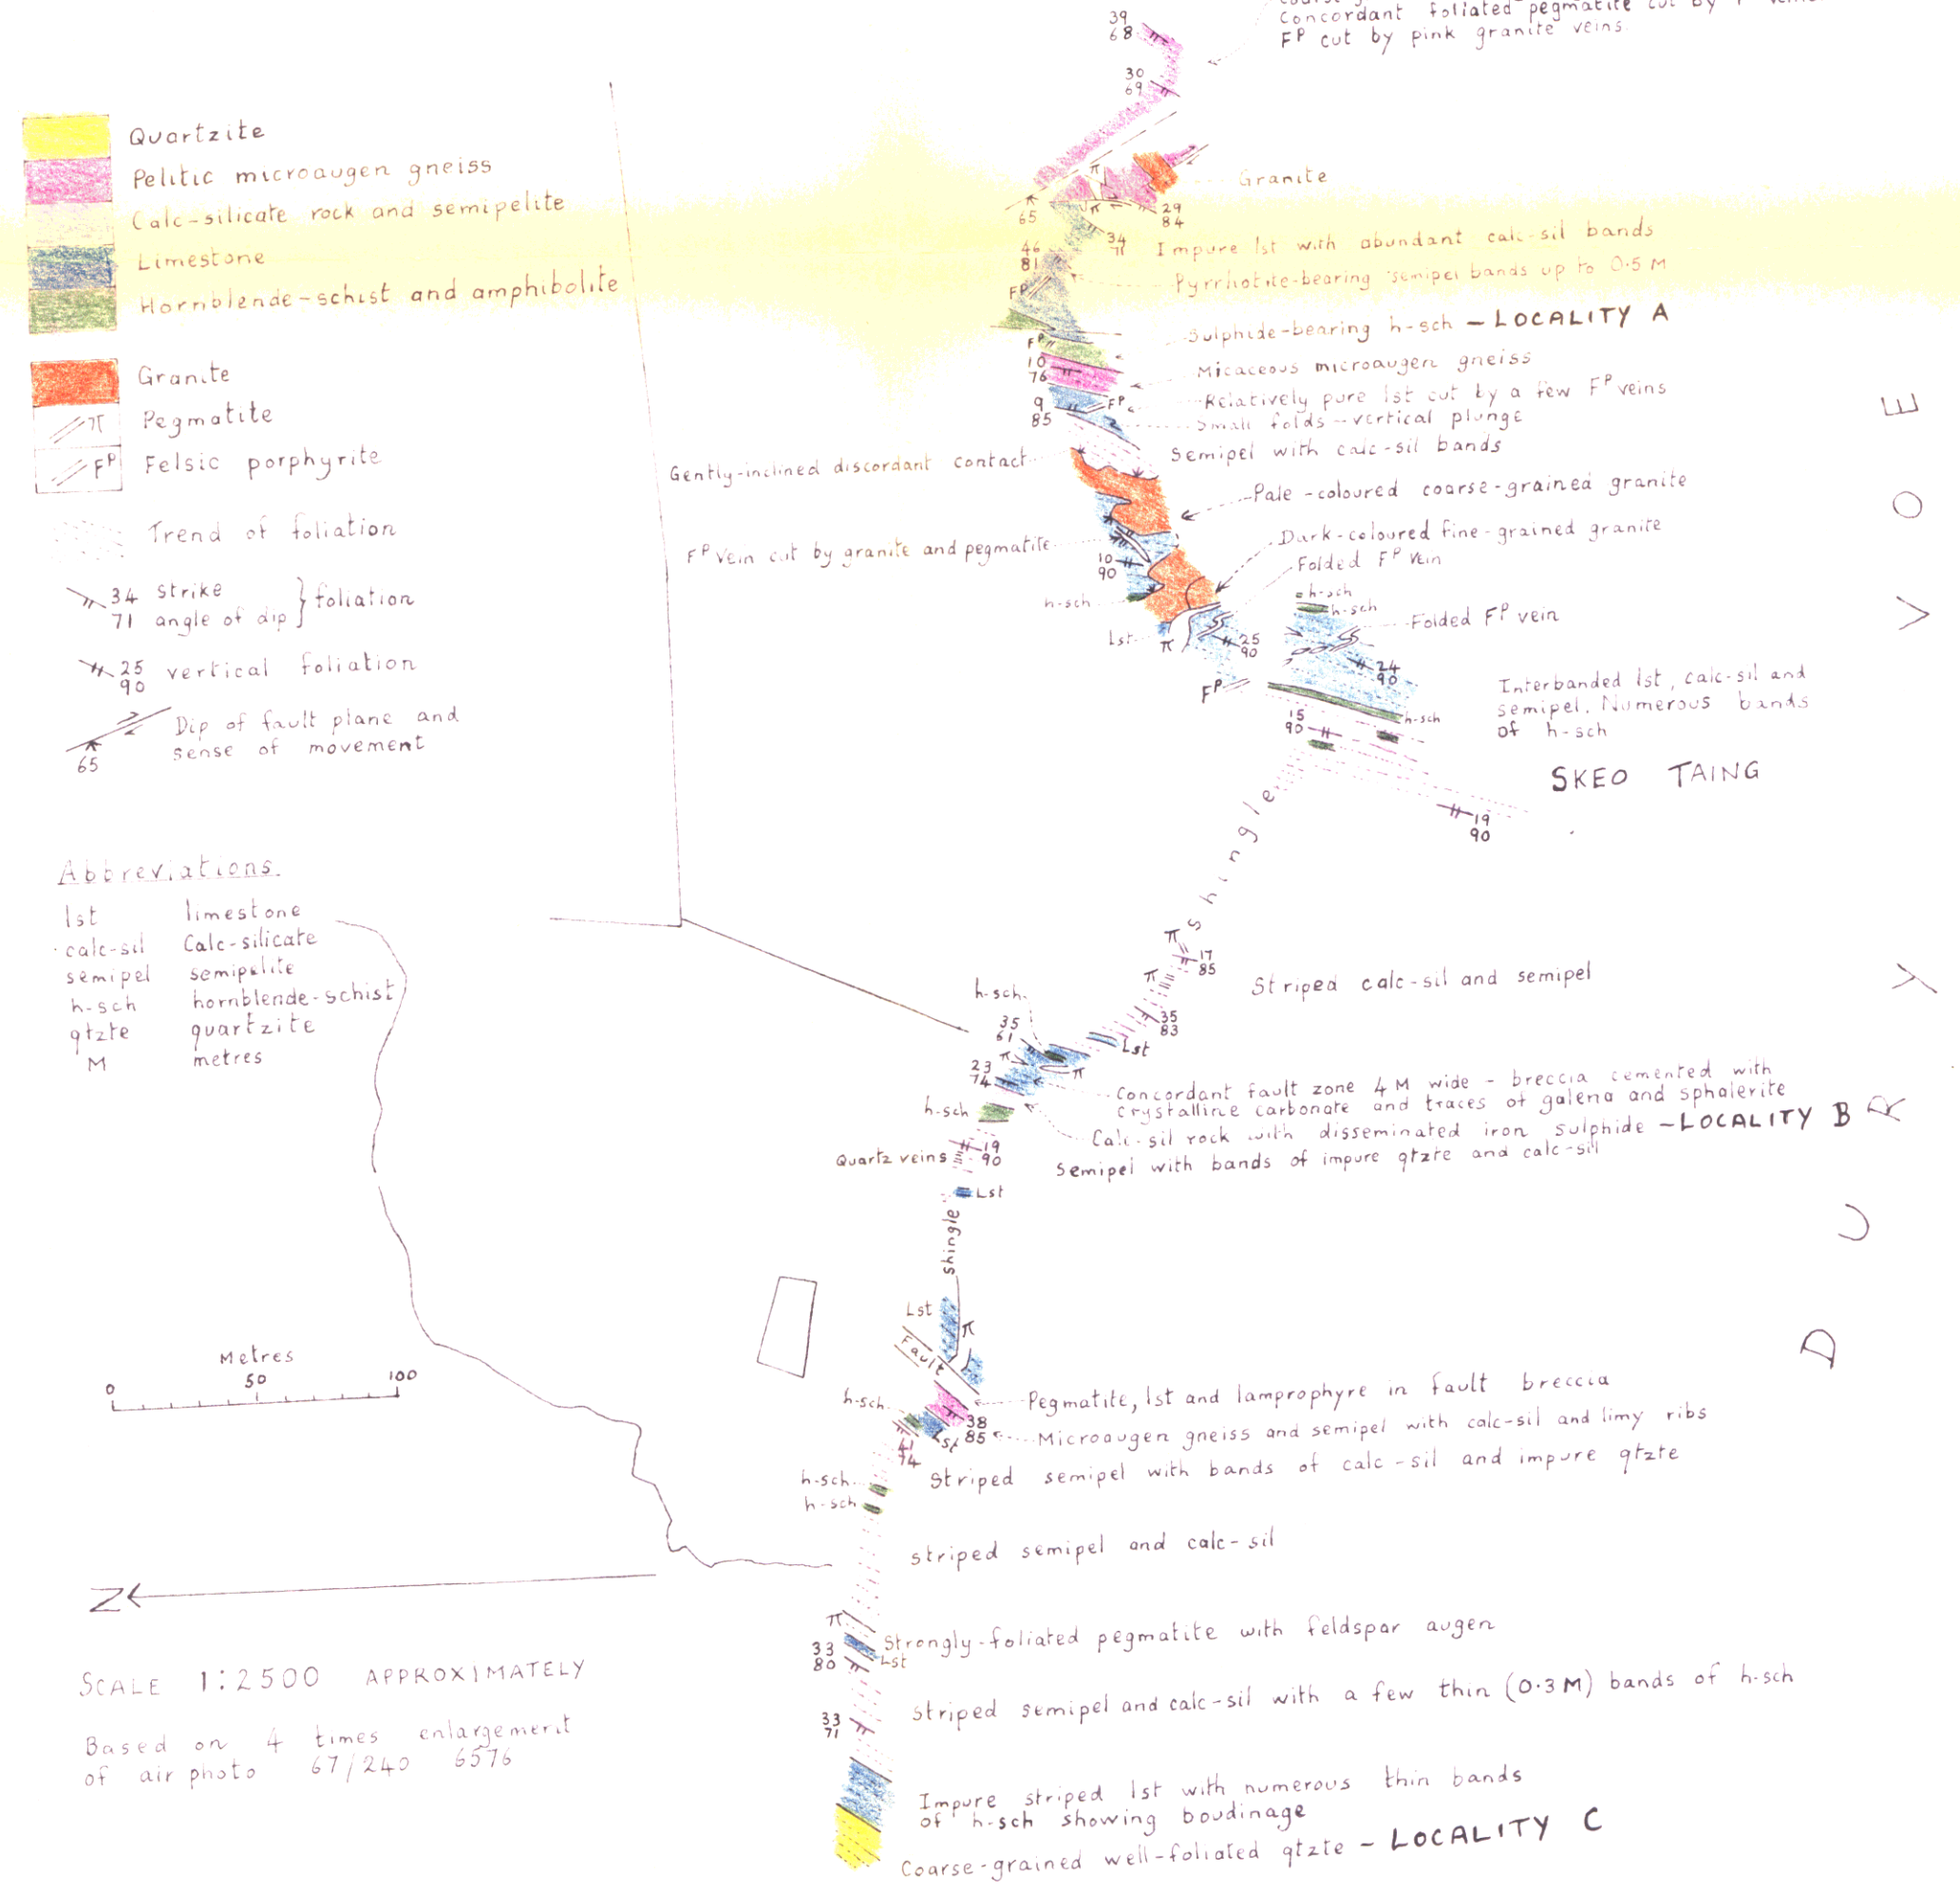 Concordant foliated pegmatite cut by
FP cut by pink granite veins.
39
68
30
69
Quartzite
Pelitic microaugen gneiss
Calc-silicate rock and semipelite
Limestone
Hornblende-schist and amphibolite
Granite
π Pegmatite
FP Felsic porphyrite
Trend of foliation
34 strike
71 angle of dip } foliation
25
90 vertical foliation
Dip of fault plane and
sense of movement
65
Abbreviations.
lst limestone
calc-sil Calc-silicate
semipel semipelite
h-sch hornblende-schist
qtzte quartzite
M metres
Metres
0 50 100
Z
SCALE 1:2500 APPROXIMATELY
Based on 4 times enlargement
of air photo 67/240 6576
π
Granite
65
π
29
84
34
71
Impure lst with abundant calc-sil bands
46
81
Pyrrhotite-bearing semipel bands up to 0.5 M
FP
Sulphide-bearing h-sch - LOCALITY A
FP
10
76
Micaceous microaugen gneiss
9
85
FP
Relatively pure lst cut by a few FP veins
Small folds - vertical plunge
Semipel with calc-sil bands
Gently-inclined discordant contact
Pale-coloured coarse-grained granite
FP vein cut by granite and pegmatite
Dark-coloured fine-grained granite
Folded FP vein
10
90
h-sch
h-sch
h-sch
Folded FP vein
lst
π
25
90
24
90
FP
h-sch
15
90
Interbanded lst, calc-sil and
semipel. Numerous bands
of h-sch
SKEO TAING
19
90
shingle
π
17
85
π
Striped calc-sil and semipel
35
83
h-sch
35
61
Lst
π
π
23
74
Concordant fault zone 4 M wide - breccia cemented with
crystalline carbonate and traces of galena and sphalerite
h-sch
Calc-sil rock with disseminated iron sulphide - LOCALITY B
19
90
Quartz veins
Semipel with bands of impure qtzte and calc-sil
Lst
shingle
Lst
π
Fault
Pegmatite, lst and lamprophyre in fault breccia
h-sch
38
85
Lst
Microaugen gneiss and semipel with calc-sil and limy ribs
41
74
Striped semipel with bands of calc-sil and impure qtzte
h-sch
h-sch
striped semipel and calc-sil
π
Strongly-foliated pegmatite with feldspar augen
33
80
Lst
striped semipel and calc-sil with a few thin (0.3 M) bands of h-sch
33
71
Impure striped lst with numerous thin bands
of h-sch showing boudinage
Coarse-grained well-foliated qtzte - LOCALITY C
DURY VOE